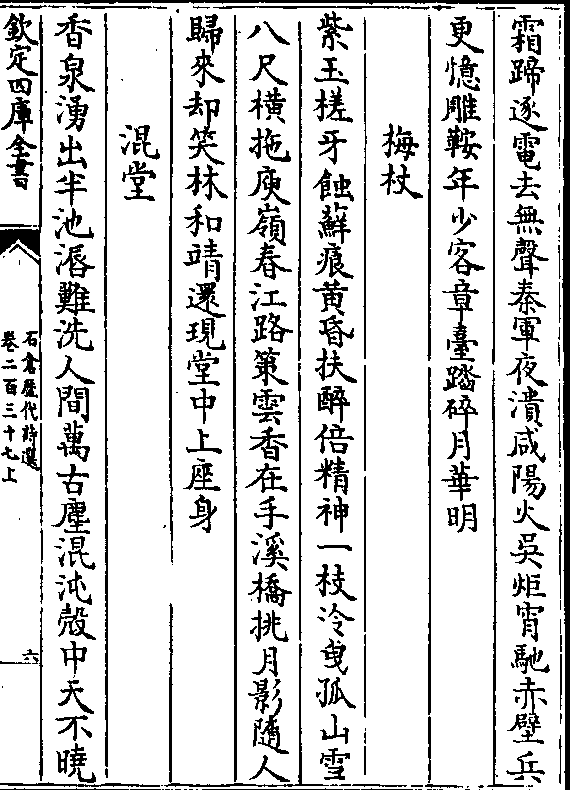 霜蹄逐電去無聲秦軍夜潰咸陽火吳炬宵馳赤壁兵
更憶雕鞍年少客章臺踏碎月華明
梅杖
紫玉槎牙蝕蘚痕黄昏扶醉倍精神一枝冷曳孤山雪
八尺横拖庾嶺春江路策雲香在手溪橋挑月影隨人
歸來却笑林和靖還現堂中上座身
混堂
香泉湧出半池湣難洗人間萬古塵混沌殻中天不曉
欽定四庫全書
石倉歴代詩選
卷二百三十七上
六